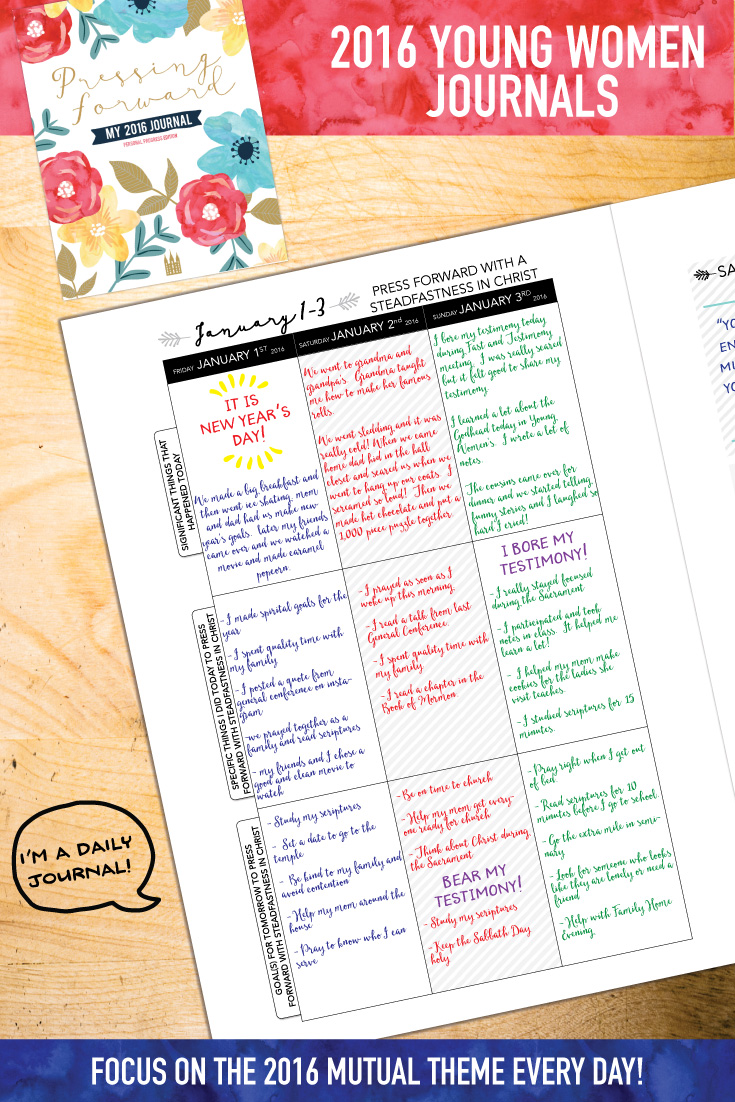 2016 YOUNG WOMEN
JOURNALS
Pressing
forward
MY 2016 JOURNAL
PERSONAL PROGRESS EDITION
January 1-3
PRESS FORWARD WITH A
STEADFASTNESS IN CHRIST
FRIDAY JANUARY 1ST 2016
SATURDAY JANUARY 2nd 2016
SUNDAY JANUARY 3RD 2016
SIGNIFICANT THINGS THAT
HAPPENED TODAY
IT IS
NEW YEAR'S
DAY!
We made a big breakfast and
then went ice skating. mom
and dad had us make new
year's goals. later my friends
came over and we watched a
movie and made caramel
popcorn.
We went to grandma and
grandpa's. Grandma taught
me how to make her famous
rolls.
We went sledding and it was
really cold! When we came
home dad hid in the hall
closet and scared us when we
went to hang up our coats. I
screamed so loud! Then we
made hot chocolate and put a
1,000 piece puzzle together.
I bore my testimony today
during Fast and Testimony
meeting. I was really scared
but it felt good to share my
testimony.
I learned a lot about the
Godhead today in Young
Women's. I wrote a lot of
notes.
The cousins came over for
dinner and we started telling
funny stories and I laughed so
hard I cried!
SPECIFIC THINGS I DID TODAY TO PRESS
FORWARD WITH STEADFASTNESS IN CHRIST
-I made spirital goals for the
year
-I spent quality time with
my family.
-I posted a quote from
general conference on insta-
gram
-we prayed together as a
family and read scriptures
- my friends and I chose a
good and clean movie to
watch
-I prayed as soon as I
woke up this morning.
-I read a talk from last
General Conference.
-I spent quality time with
my family.
-I read a chapter in the
Book of Mormon.
I BORE MY
TESTIMONY!
-I really stayed focused
during the Sacrament
-I participated and took
notes in class. It helped me
learn a lot!
- I helped my mom make
cookies for the ladies she
visit teaches.
-I studied scriptures for 15
minutes.
GOAL(S) FOR TOMORROW TO PRESS
FORWARD WITH STEADFASTNESS IN CHRIST
- Study my scriptures
- Set a date to go to the
temple
- Be kind to my family and
avoid contention
-Help my mom around the
house
- Pray to know who I can
serve
-Be on time to church
-Help my mom get every-
one ready for church
-Think about Christ during
the Sacrament
BEAR MY
TESTIMONY!
-Study my scriptures
-Keep the Sabbath Day
holy
-Pray right when I get out
of bed.
-Read scriptures for 10
minutes before I go to school
-Go the extra mile in semi-
nary
-Look for someone who looks
like they are lonely or need a
friend
-Help with Family Home
Evening.
SA
"YO
EN
MI
YO
I'M A DAILY
JOURNAL!
FOCUS ON THE 2016 MUTUAL THEME EVERY DAY!